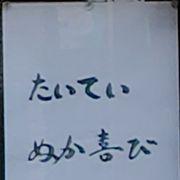 たいてい
ぬか喜び